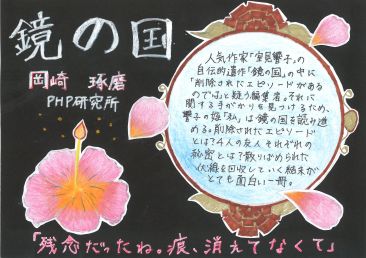 鏡の国
岡崎 琢磨
PHP研究所
人気作家「室見響子」の
自伝的遺作「鏡の国」の中に
「削除されたエピソードがある
のでは」と疑う編集者。それに
関する手がかりを見つけるため、
響子の姪「私」は鏡の国を読み進
める。削除されたエピソード
とは?4人の友人それぞれの
秘密とは?散りばめられた
伏線を回収していく結末が
とても面白い一冊。
「残念だったね。痕、消えてなくて」